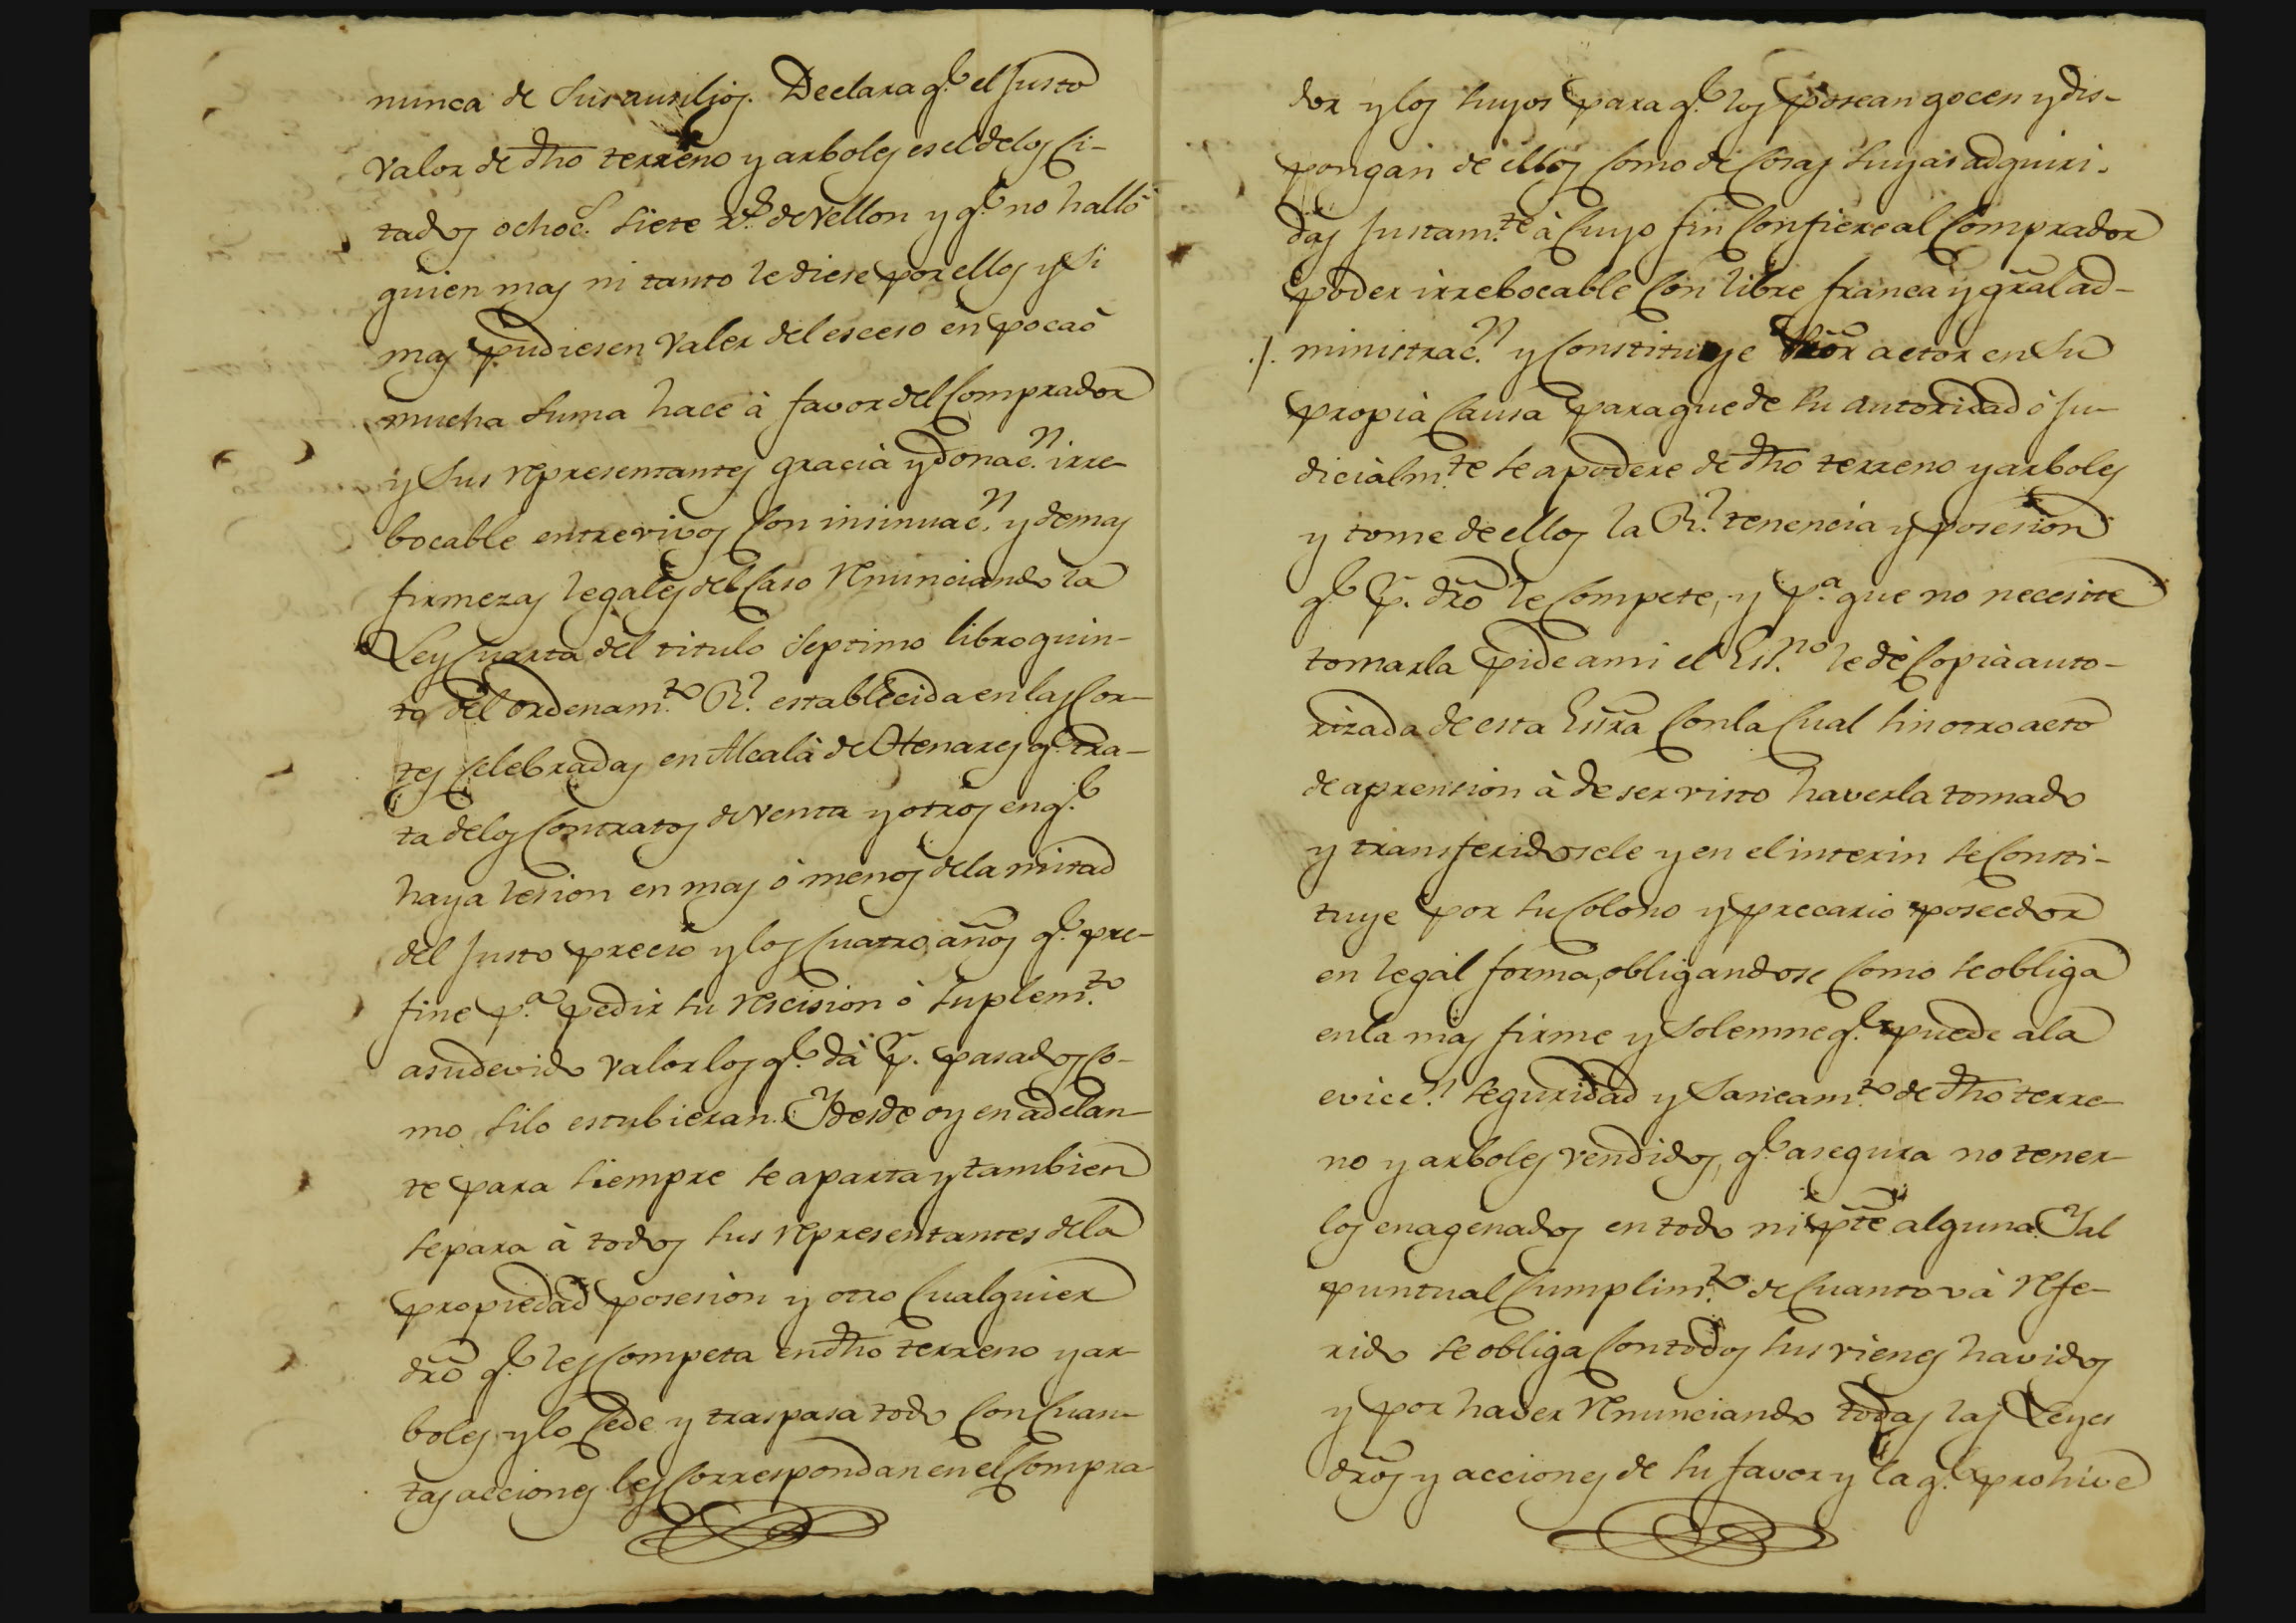 nunca de sus ausilios. Declara q.e el justo
valor de dho terreno y arboles es el de los ci-
tados ochoc.s siete r.s de vellon y q.e no halló
quien mas ni tanto le diese por ellos y si
mas pudiesen valer del esceso en poca ò
mucha suma hace à favor del comprador
y sus representantes gracia y donac.n irre-
bocable entre vivos con insinuac.n y demas
firmezas legales del caso renunciando la
Ley cuarta del titulo septimo libro quin-
to del ordenam.to R.l establecida en las Cor-
tes celebradas en Alcalà de Henares q.e tra-
ta de los contratos de venta y otros en q.e
haya lesion en mas ò menos de la mitad
del justo precio y los cuatro años q.e pre-
fine p.a pedir su rescision ò suplem.to
a su devido valor los q.e dà p.r pasados co-
mo si lo estubieran. Y desde oy en adelan-
te para siempre se aparta y tambien
separa à todos sus representantes de la
propiedad posesion y otro cualquier
dro q.e les competa en dho terreno y ar-
boles y lo cede y traspasa todo con cuan-
tas acciones les correspondan en el compra-
dor y los suyos para q.e los posean gocen y dis-
pongan de ellos como de cosas suyas adquiri-
das justam.te à cuyo fin confiere al comprador
poder irrebocable con libre franca y gral ad-
./. ministrac.n y constituye actor en su
propia causa para que de su autoridad ò ju-
dicialm.te se apodere de dho terreno y arboles
y tome de ellos la R.l tenencia y posesion
q.e p.r dro le compete, y p.a que no necesite
tomarla pide a mi el Es.no le dè copia auto-
rizada de esta Esra con la cual sin otro acto
de aprension à de ser visto haverla tomado
y transferidosele y en el interin se consti-
tuye por su colono y precario poseedor
en legal forma, obligandose como se obliga
en la mas firme y solemne q.e puede a la
evicc.n seguridad y saneam.to de dho terre-
no y arboles vendidos, q.e asegura no tener-
los enagenados en todo ni pte alguna. Y al
puntual cumplim.to de cuanto và refe-
rido se obliga con todos sus vienes havidos
y por haver renunciando todas las Leyes
dros y acciones de su favor y la q.e prohive